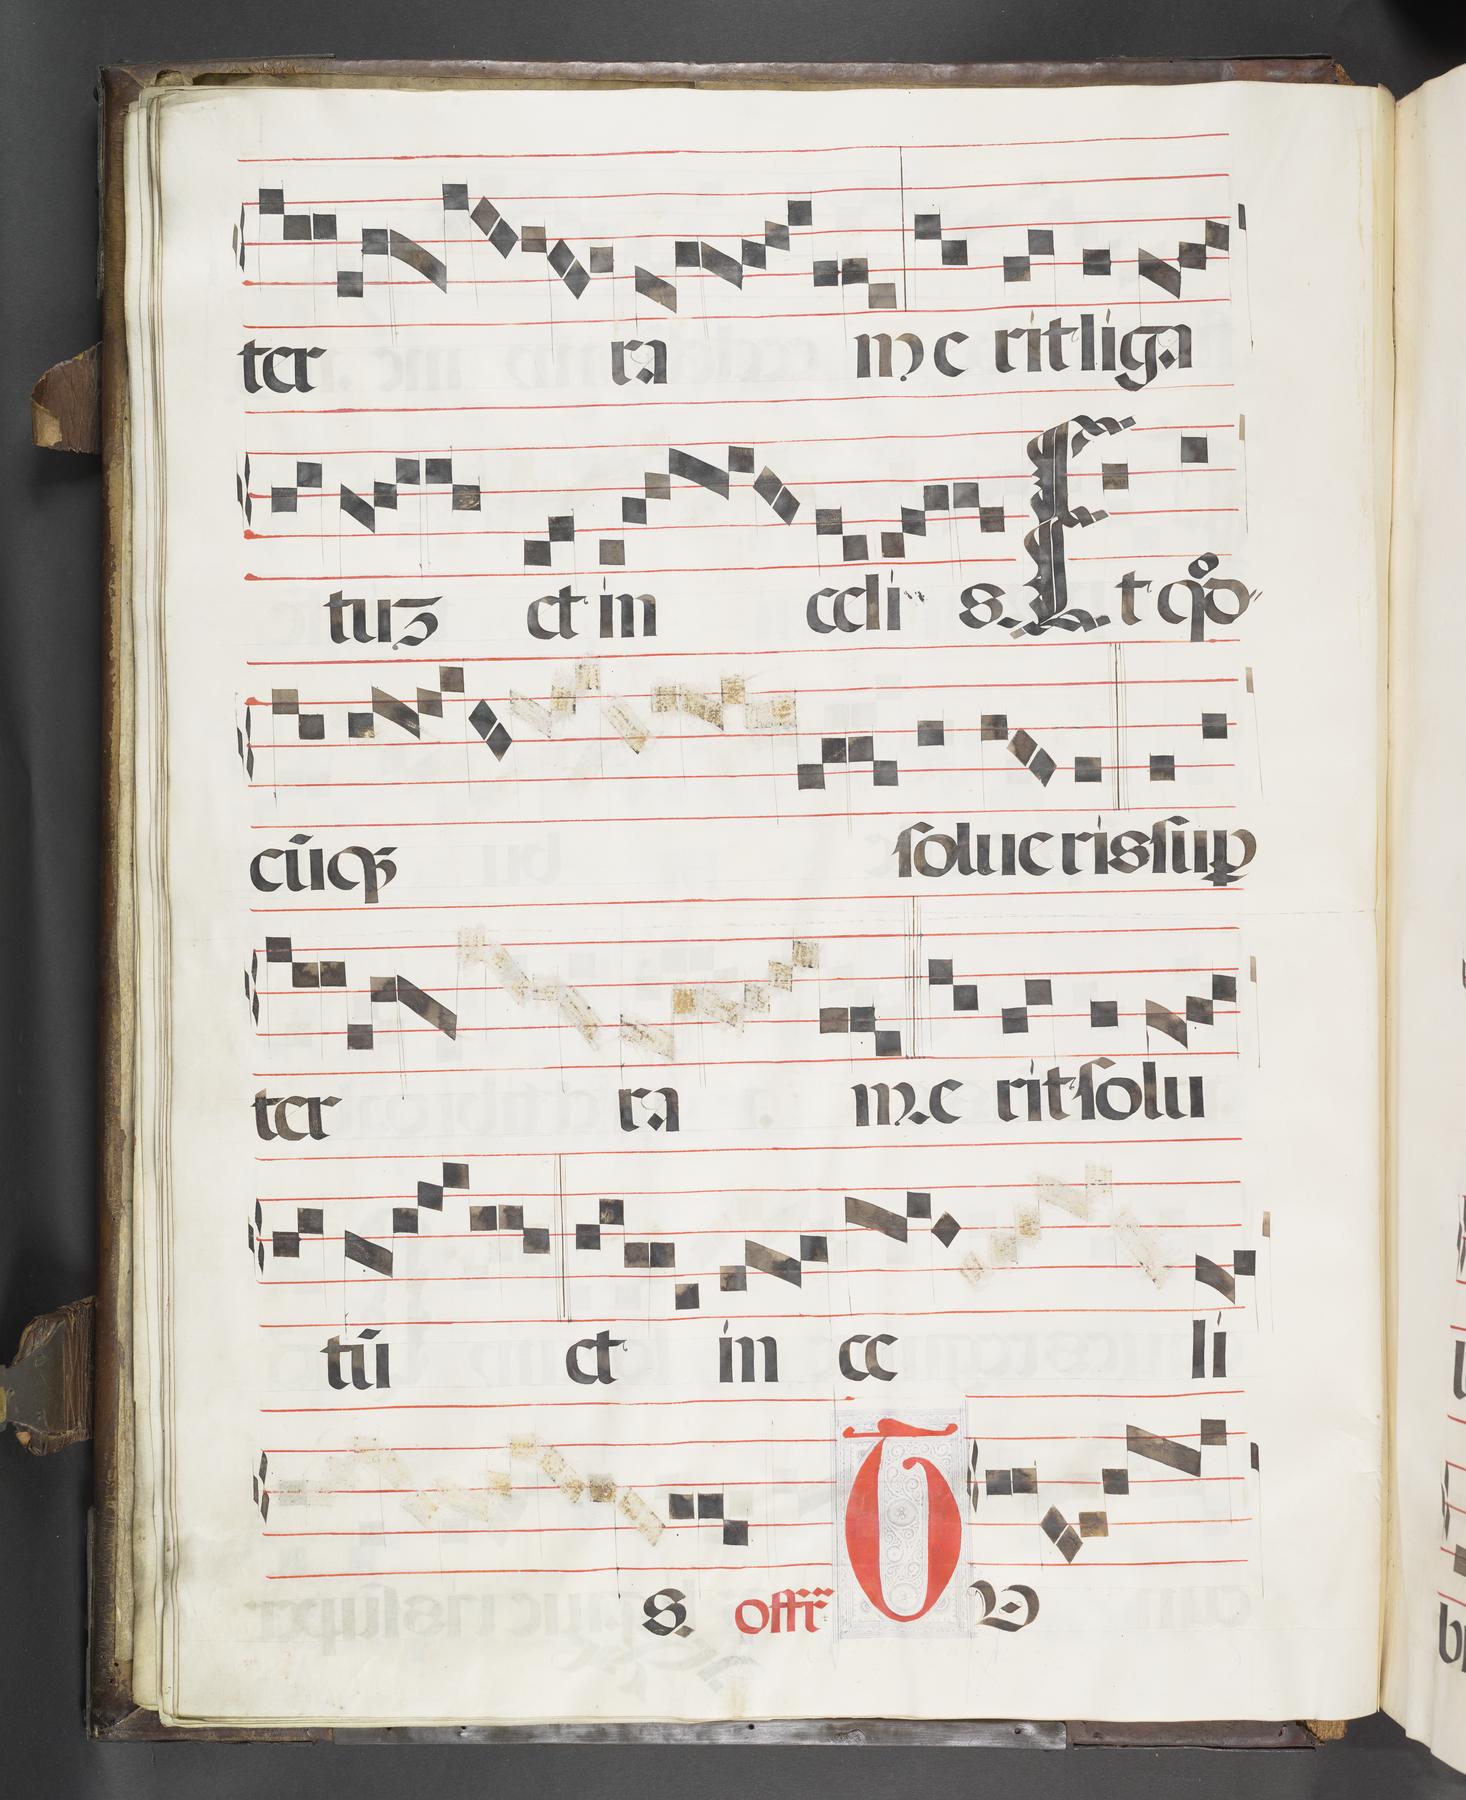 ter ra m e rit liga
tuz et in celi s. Et qd
cũqꝫ solue ris sup
ter ra m.e rit solu
tũ et in ce li
s. offr̃ O D